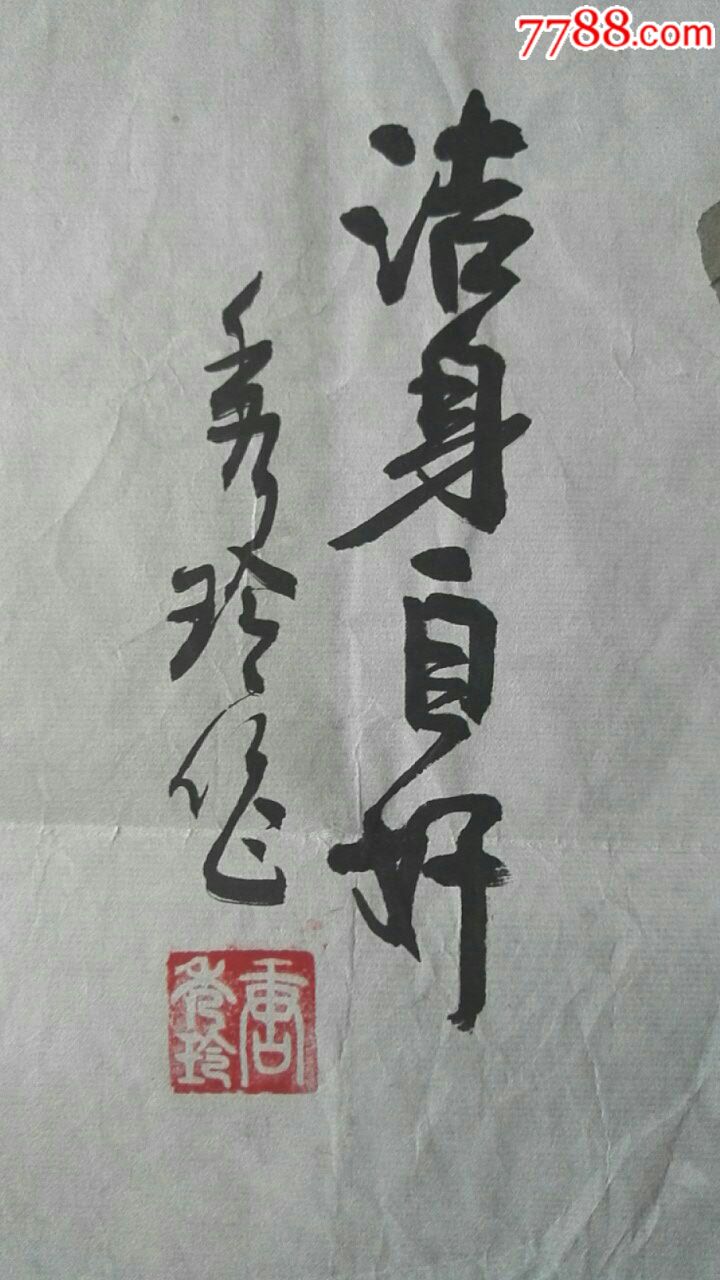 7788.com
洁身自好
秀玲作
唐秀玲